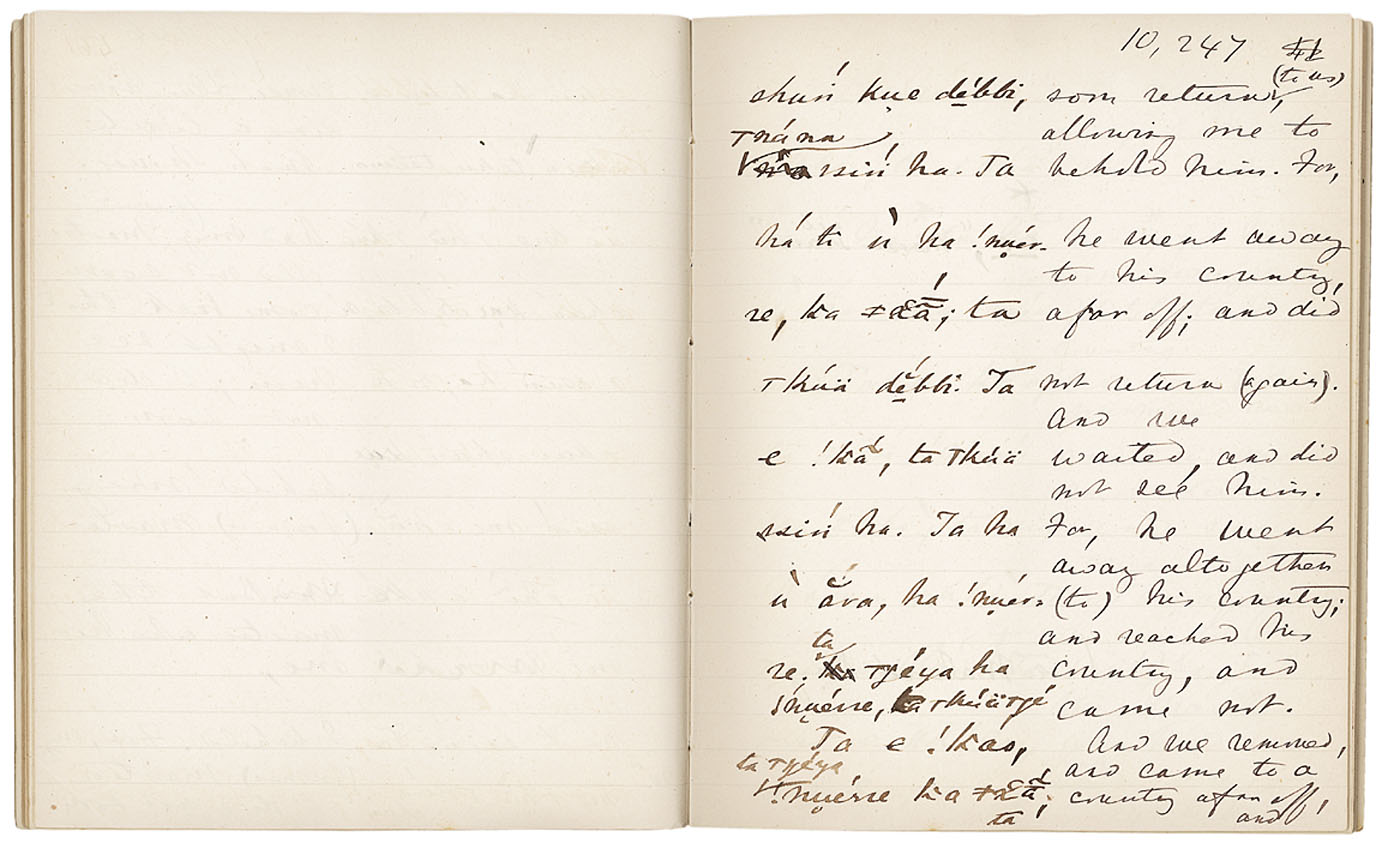 10,247
(to us)
dĕ́bbi, some return,
Tnána allowing me to
ha. Ta behold him. For,
há ti ù ha !nu̩ér- he went away
to his country,
re, ka ; ta afar off; and did
Tkúä dĕ́bbi. Ta not return (again).
And we
e !kā́, ta Tkúä waited, and did
not see him.
ha. Ta ha For, he went
away altogether
ù ắra, ha !nu̩ér- (to) his country;
ta and reached his
re. Tyéya ha country, and
Tkúä Tyé came not.
Ta e !kao, And we removed,
ta Tyéya and came to a
!nu̩érre ka country afar off,
ta and